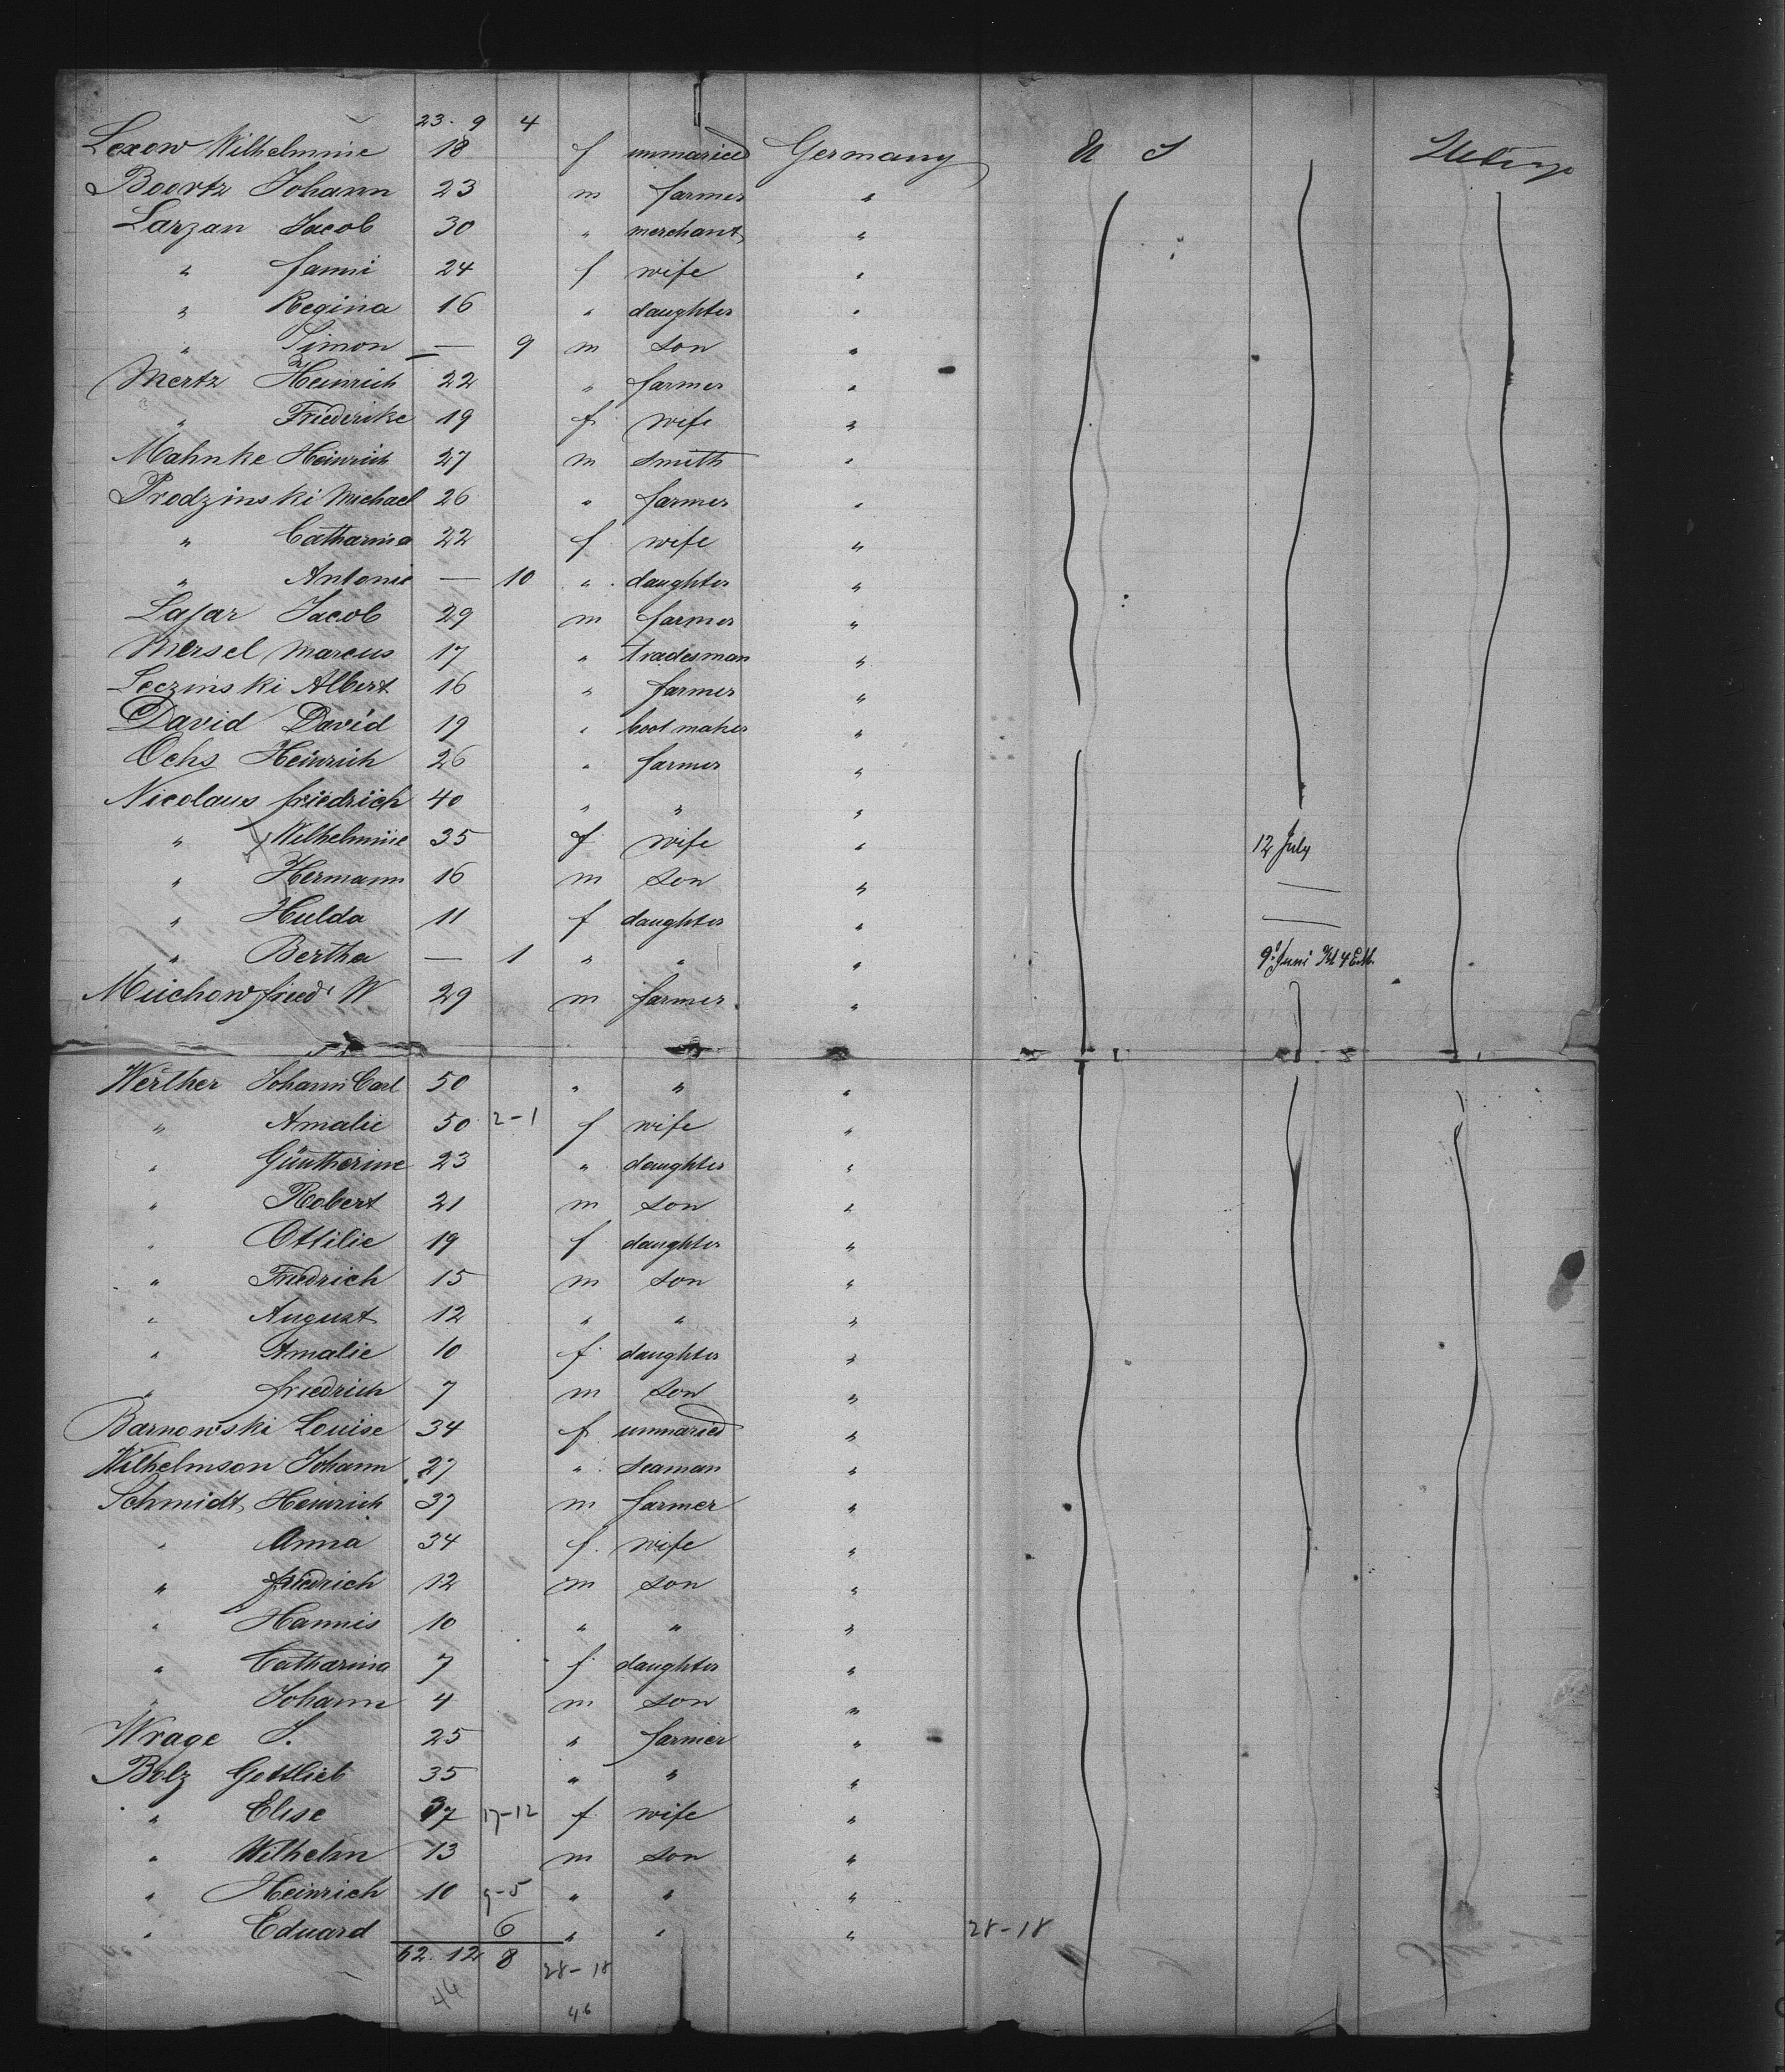 23. 9 4
Lexow Wilhelmine 18 f unmaried Germany U S
Boortz Johann 23 m farmer "
Larzan Jacob 30 " merchant "
" Fanni 24 f wife "
" Regina 16 " daughter "
" Simon — 9 m son "
Mertz Heinrich 22 " farmer "
" Friederike 19 f wife "
Mahnke Heinrich 27 m smith "
Prodzinski Michael 26 " farmer "
" Catharina 22 f wife "
" Antonie — 10 " daughter "
Lasar Jacob 29 m farmer "
Mersel Marcus 17 " tradesman "
Leczinski Albert 16 " farmer "
David David 19 " boot maker "
Ochs Heinrich 26 " farmer "
Nicolaus Friedrich 40 " " "
" Wilhelmine 35 f wife " 12 July
" Hermann 16 m son " —
" Hulda 11 f daughter " —
" Bertha — 1 " " " 9. Juni
Müchow Fried W 29 m farmer "
Werther Johann Carl 50 " " "
" Amalie 50 2-1 f wife "
" Güntherine 23 " daughter "
" Robert 21 m son "
" Ottilie 19 f daughter "
" Friedrich 15 m son "
" August 12 " " "
" Amalie 10 f daughter "
" Friedrich 7 m son "
Barnowski Louise 34 f unmaried "
Wilhelmson Johann 27 " seaman "
Schmidt Heinrich 37 m farmer "
" Anna 34 f wife "
" Friedrich 12 m son "
" Hannis 10 " " "
" Catharina 7 f daughter "
" Johann 4 m son "
Wrage J. 25 " farmer "
Bolz Gottlieb 35 " " "
" Elise 37 17-12 f wife "
" Wilhelm 13 m son "
" Heinrich 10 9-5 " " "
" Eduard 6 " " " 28-18
62. 12 8 28-18
44 46